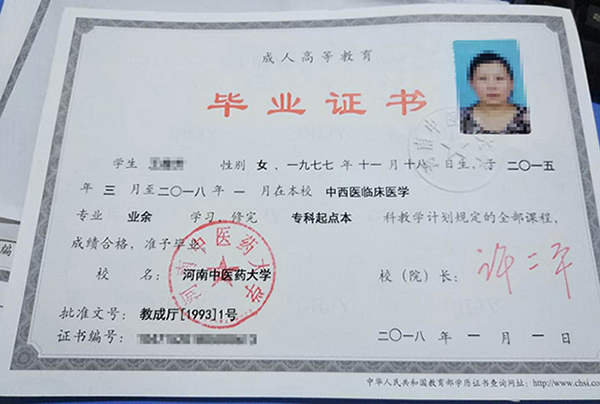 成人高等教育
毕业证书
学生 性别 女，一九七七年十一月十八日生，于二〇一五
年三月至二〇一八年一月在本校 中西医临床医学
专业 业余 学习，修完 专科起点本 科教学计划规定的全部课程，
成绩合格，准予毕业。
校 名：河南中医药大学 校（院）长：许二平
批准文号：教成厅[1993]1号
证书编号： 二〇一八年一月一日
中华人民共和国教育部学历证书查询网址：http://www.chsi.co
河南中医药大学
编
编号